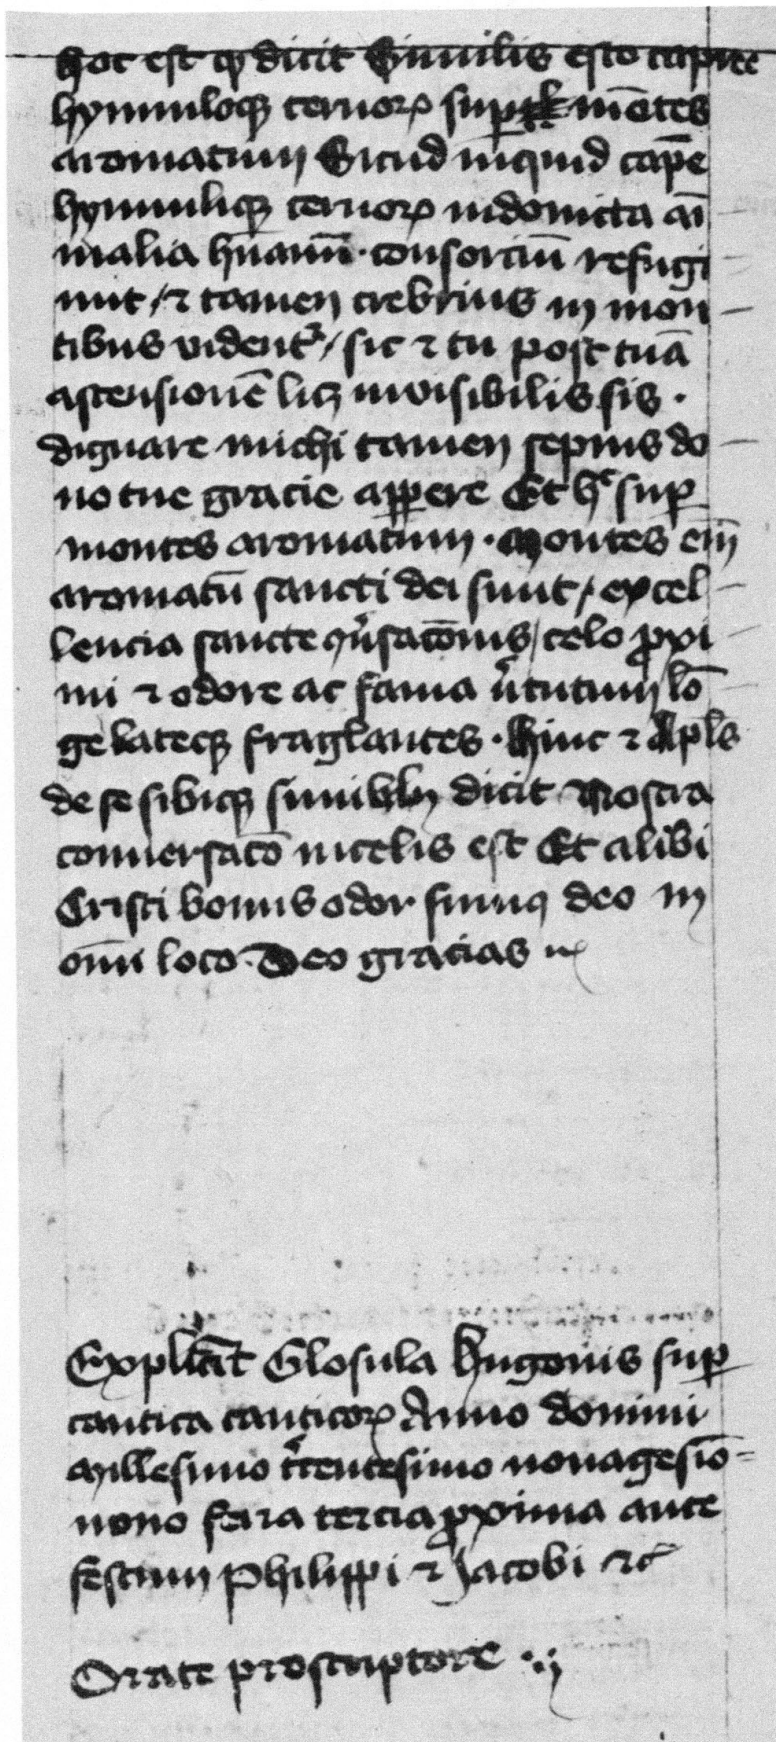 hoc est qd dicit Similis esto capree
hymnuloqꝫ ceruoꝝ suꝑ mōtes
aromatum Sicud inquid capᵉe
hymnuliqꝫ ceruoꝝ indomita ai̅
malia hūanū · consorciū refugi
unt / ⁊ tamen crebrius in mon
tibus vident᷑ / sic ⁊ tu post tuā
ascensionē licꝫ invisibilis sis ·
dignare michi tamen sepius do
no tue gracie aꝑere Et hͨ suꝑ
montes aromatum · Montes em̄
aromatū sancti dei sunt / excel
lencia sancte ꝯu̾sacōnis / celo ꝓxi
mi ⁊ odore ac fama v̾tutum lō
ge lateqꝫ fraglantes · Hinc ⁊ Apl̄s
de se sibiqꝫ similibꝫ dicit Nostra
conuersacō in celis est Et alibi
Cristi bonus odor sumꝯ deo in
om̄i loco · Deo gracias
Explicit Glosula Hugonis suꝑ
cantica canticoꝝ Anno domini
Millesimo t̾centesimo nonagesiō
nono feria tercia ꝓxima ante
festum Philippi ⁊ Jacobi ⁊c̄
Orate pro scriptore